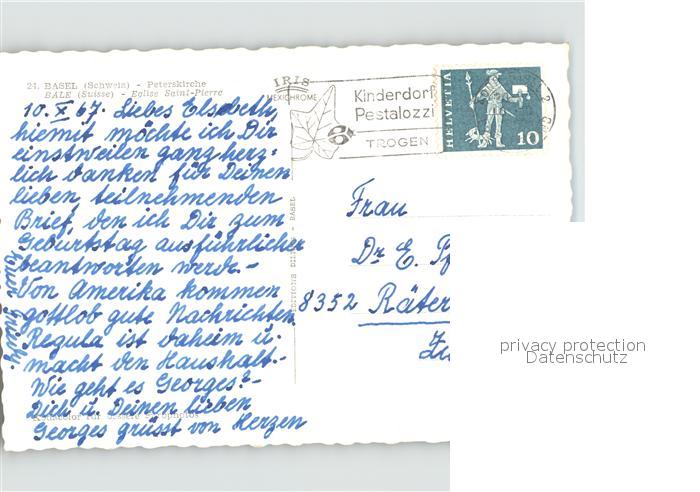 24. BASEL (Schweiz) - Peterskirche
BALE (Suisse) - Eglise Saint-Pierre
IRIS
MEXICHROME
Kinderdorf
Pestalozzi
TROGEN
HELVETIA
10
10. X 67. Liebes Elsbeth,
hiemit möchte ich Dir
einstweilen ganz herz-
lich danken für Deinen
lieben, teilnehmenden
Brief, den ich Dir zum
Geburtstag ausführlicher
beantworten werde.-
Von Amerika kommen
gottlob gute Nachrichten.
Regula ist daheim u.
macht den Haushalt.-
Wie geht es Georges?-
Dich u. Deinen lieben
Georges grüsst von Herzen
Frau
Dr E. Pf
8352 Räter
Zü
BASEL
privacy protection
Datenschutz